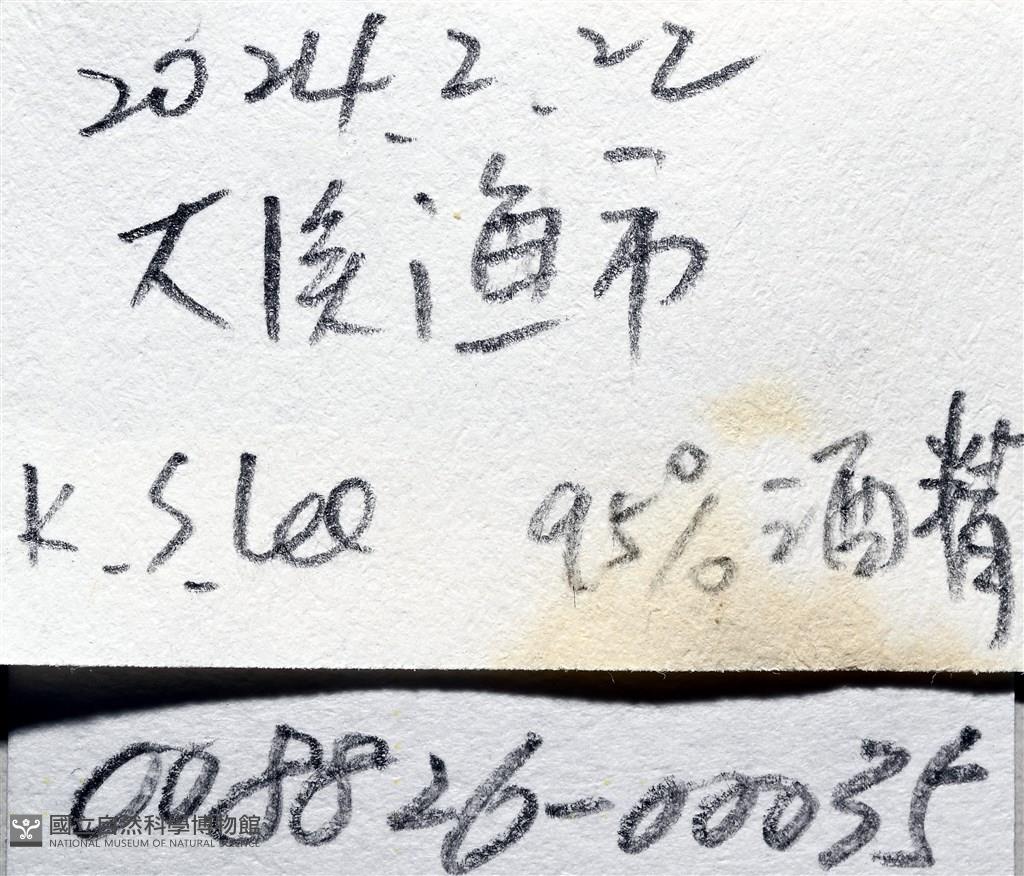 2024.2.22
大溪渔市
K.S.Lee 95%酒精
008826-00035
國立自然科學博物館
NATIONAL MUSEUM OF NATURAL SCIENCE